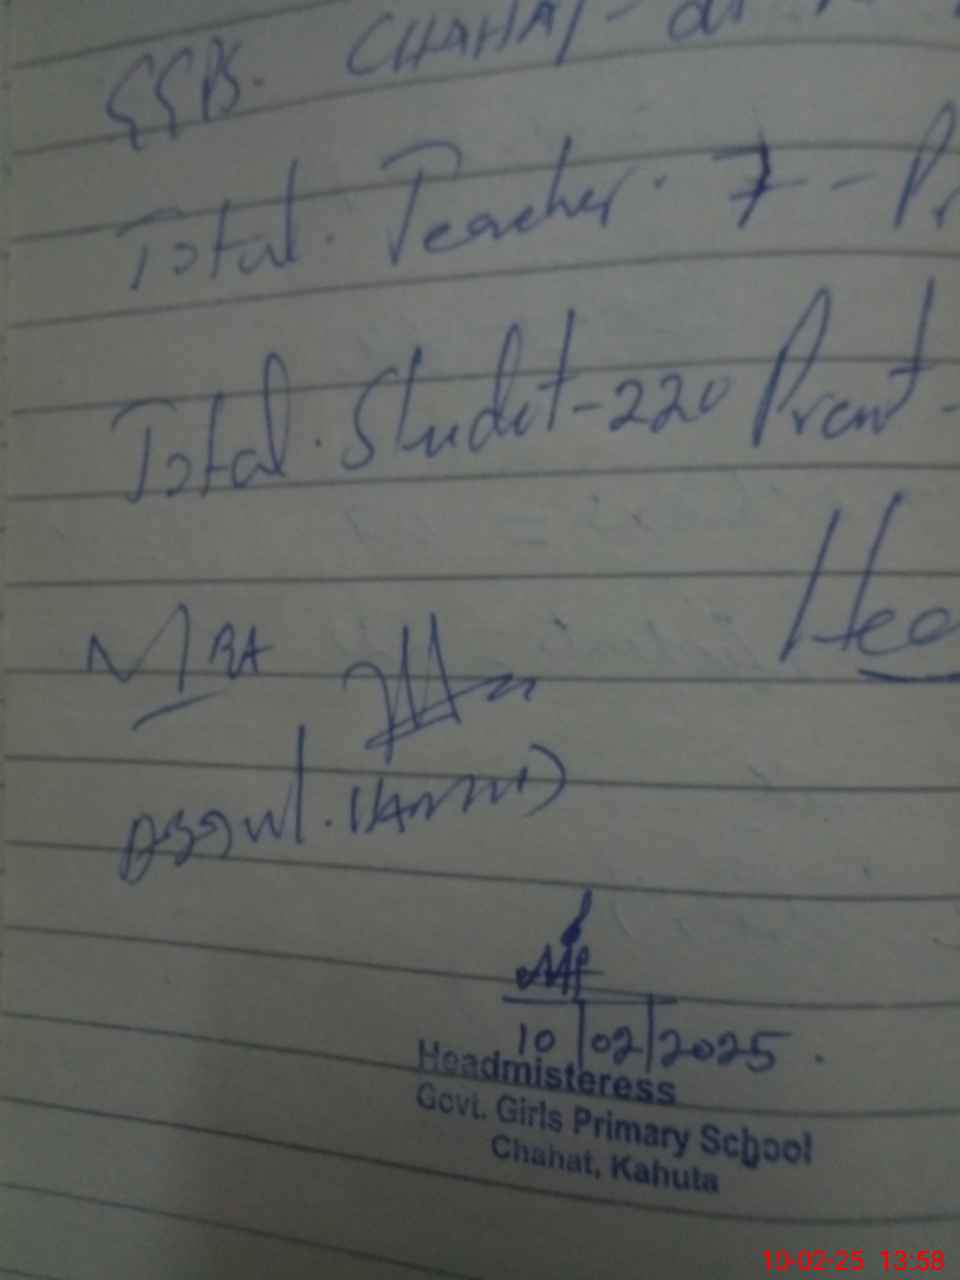 GGPS. CHAHAT - at
Total. Teacher. 7 - Pr
Total. Studet - 220 Prent -
Hea
MRA
10/02/2025.
Headmisteress
Govt. Girls Primary School
Chahat, Kahuta
10-02-25 13:58